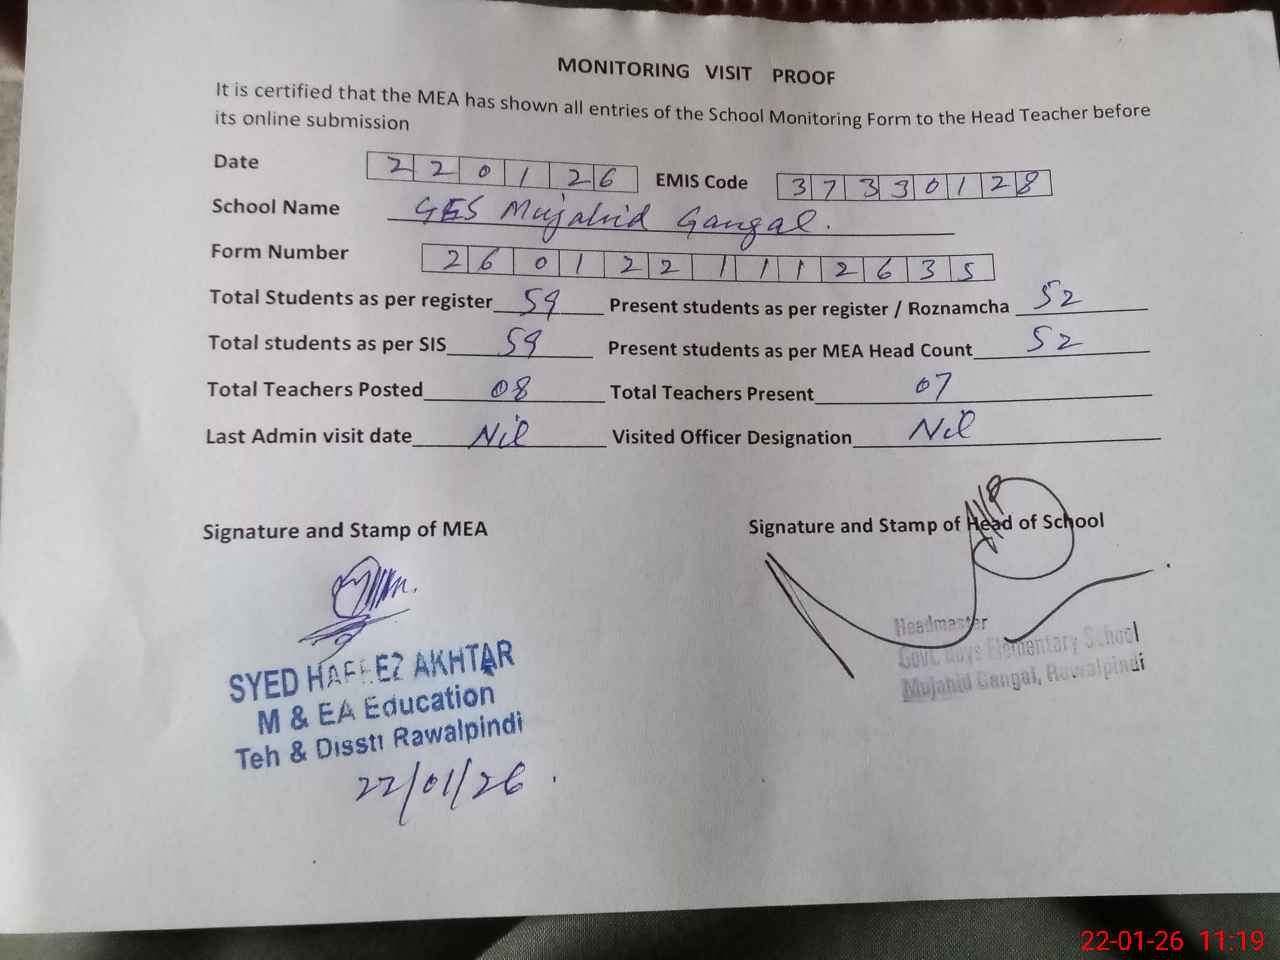 MONITORING VISIT PROOF
It is certified that the MEA has shown all entries of the School Monitoring Form to the Head Teacher before
its online submission
Date 220126 EMIS Code 37330128
School Name GES Mujahid Gangal.
Form Number 2601221112635
Total Students as per register 59 Present students as per register / Roznamcha 52
Total students as per SIS 59 Present students as per MEA Head Count 52
Total Teachers Posted 08 Total Teachers Present 07
Last Admin visit date Nil Visited Officer Designation Nil
Signature and Stamp of MEA Signature and Stamp of Head of School
SYED HAFEEZ AKHTAR
M & EA Education
Teh & Disstt Rawalpindi
22/01/26.
Headmaster
Govt. Boys Elementary School
Mujahid Gangal, Rawalpindi
22-01-26 11:19